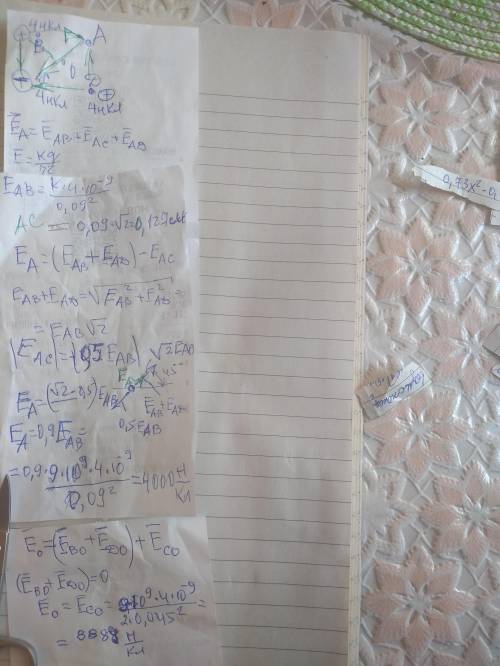 4нКл
B
A
O
D
4нКл
4нКл
E̅A = E̅AB + E̅AC + E̅AD
E = kq/r²
EAB = k·4·10⁻⁹/0,09²
AC = 0,09·√2 = 0,127
EA = (EAB + EAD) - EAC
EAB + EAD = √(EAB² + EAD²) =
= EAB√2
|EAC| = (0,5 EAB) √2 EAB
45
EA = (√2 - 0,5) EAB
EAB + EAD
0,5 EAB
EA = 0,9 EAB =
= 0,9 · 9·10⁹·4·10⁻⁹/0,09² = 4000 Н/Кл
E̅o = (E̅BO + E̅DO) + E̅CO
(E̅BO + E̅DO) = 0
E̅o = E̅CO = 9·10⁹·4·10⁻⁹/2·0,045² =
= 8888 Н/Кл
0,73x²